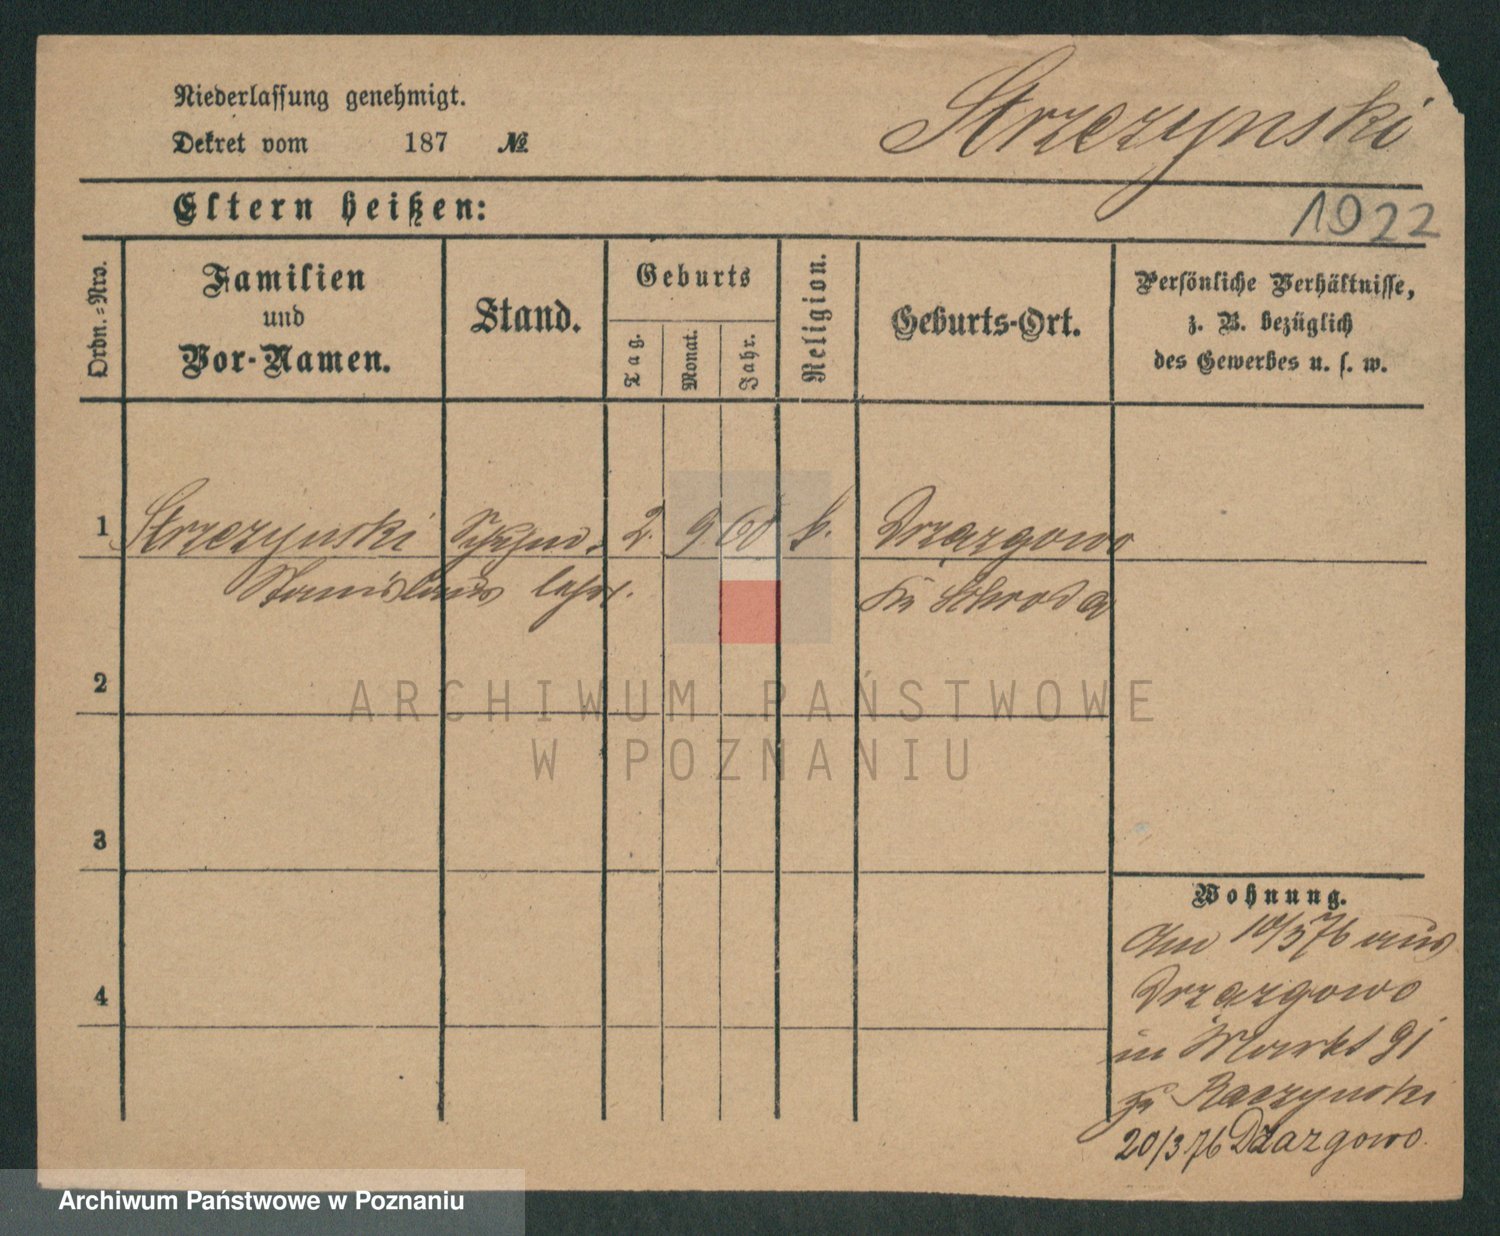 Niederlassung genehmigt.
Strzezynski
Dekret vom 187 №
Eltern heißen:
1922
Ordn.-Nro.
Familien
und
Vor-Namen.
Stand.
Geburts
Tag.
Monat.
Jahr.
Religion.
Geburts-Ort.
Persönliche Verhältnisse,
z. B. bezüglich
des Gewerbes u. s. w.
1 Strzezynski 2. 9 60 k. Drzazgowo
Stanislaus Kr Schroda
2
ARCHIWUM PAŃSTWOWE
W POZNANIU
3
Wohnung.
Am 10/3 76 aus
Drzazgowo
in Markt 91
zu Raczynski
20/3 76 Dzazgowo.
4
Archiwum Państwowe w Poznaniu